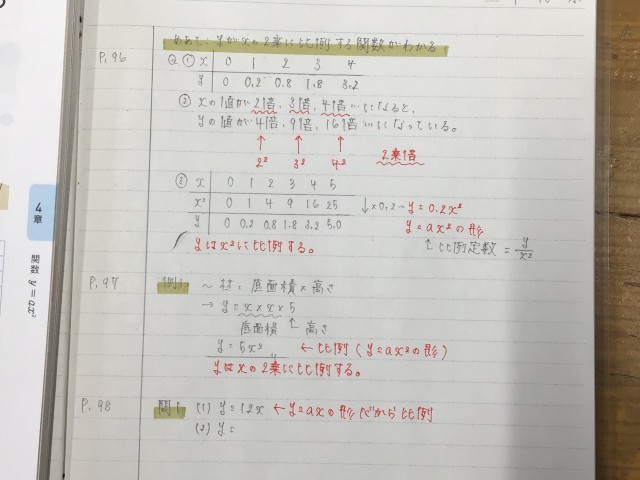 めあて: yがxの2乗に比例する関数がわかる。
P.96
Q ① x 0 1 2 3 4
y 0 0.2 0.8 1.8 3.2
② xの値が2倍、3倍、4倍…になると、
yの値が4倍、9倍、16倍…になっている。
↑ ↑ ↑ 2乗倍
2² 3² 4²
③ x 0 1 2 3 4 5
x² 0 1 4 9 16 25 ↓×0.2 → y=0.2x²
y 0 0.2 0.8 1.8 3.2 5.0 y=ax²の形
yはx²に比例する。 ↑比例定数 = y/x²
4章
関数 y=ax²
P.97 例1 〜 柱: 底面積×高さ
→ y=x×x×5
底面積 ↑高さ
y=5x² ←比例(y=ax²の形)
yはxの2乗に比例する。
P.98 問1 (1) y=12x ←y=axの形だから比例
(2) y=